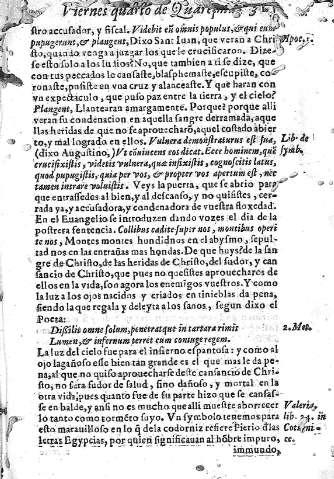 Viernes quarto de Quaresma.
stro accusador, y fiscal. Videbit eũ omnis populus, & qui eum
pupugerunt, & plangent, Dixo San Iuan, que veran a Chri- Apoc. 1.
sto, quando venga a juzgar los que le crucificaron. Dize-
se esto solo a los Iudios? No, que tambien a ti se dize, que
con tus peccados le cansaste, blasphemaste, escupiste, co-
ronaste, pusiste en vna cruz y alanceaste. Y que haran con
vn expectáculo, que puso paz entre la tierra, y el cielo?
Plangent, Llantearan amargamente. Porque? porque alli
veran su condenacion en aquella sangre derramada, aque
llas heridas de que no se aprouecharõ, aquel costado abier
to, y mal logrado en ellos. Vulnera demonstraturus est sua, Lib. de
(dixo Augustino,) Vt eũuincens eos dicat. Ecce hominem, quẽ Symb.
crucifixistis, videtis vulnera, quæ infixistis, cognoscitis latus,
quod pupugistis, quia per vos, & propter vos apertum est, nec
tamen intrare voluistis. Veys la puerta, que se abrio para
que entrassedes al bien, y al descanso, y no quisistes, cer-
rada ya, y accusadora, y condenadora de vuestra floxedad.
En el Euangelio se introduzen dando vozes el dia de la
postrera sentencia. Collibus cadite super nos, montibus operi
te nos, Montes montes hundidnos en el abysmo, sepul-
tad nos en las entrañas mas hondas. De que huys? de la san
gre de Christo, de las heridas de Christo, del sudor, y can
sancio de Christo, que pues no quesistes aprouecharos de
ellos en la vida, son agora los enemigos vuestros. Y como
la luz a los ojos nacidos y criados en tinieblas da pena,
siendo la que regala y deleyta a los sanos, segun dixo el
Poeta:
Dissilit omne solum, penetrat qut in tartara rimis 2. Met.
Lumen, & infernum terret cum coniuge regem.
La luz del cielo fue para el infierno espantosa: y como al
ojo lagañoso esse bien tan grande es el que mas le da pe-
na; al que no quiso aprouecharse deste cansancio de Chri-
sto, no sara sudor de salud, sino dañoso, y mortal en la
otra vida; pues quanto fue de su parte hizo que se cansas-
se en balde, y ansi no es mucho que alli mueste aborrecer Valeria.
lo tanto como tormẽto suyo. Vn symbolo tenemos para lib. 24. in
esto marauilloso en lo q̃ dela codorniz refiere Pierio d' las
letras Egypcias, por quien significauan al hõbre impuro, ce.
immundo,